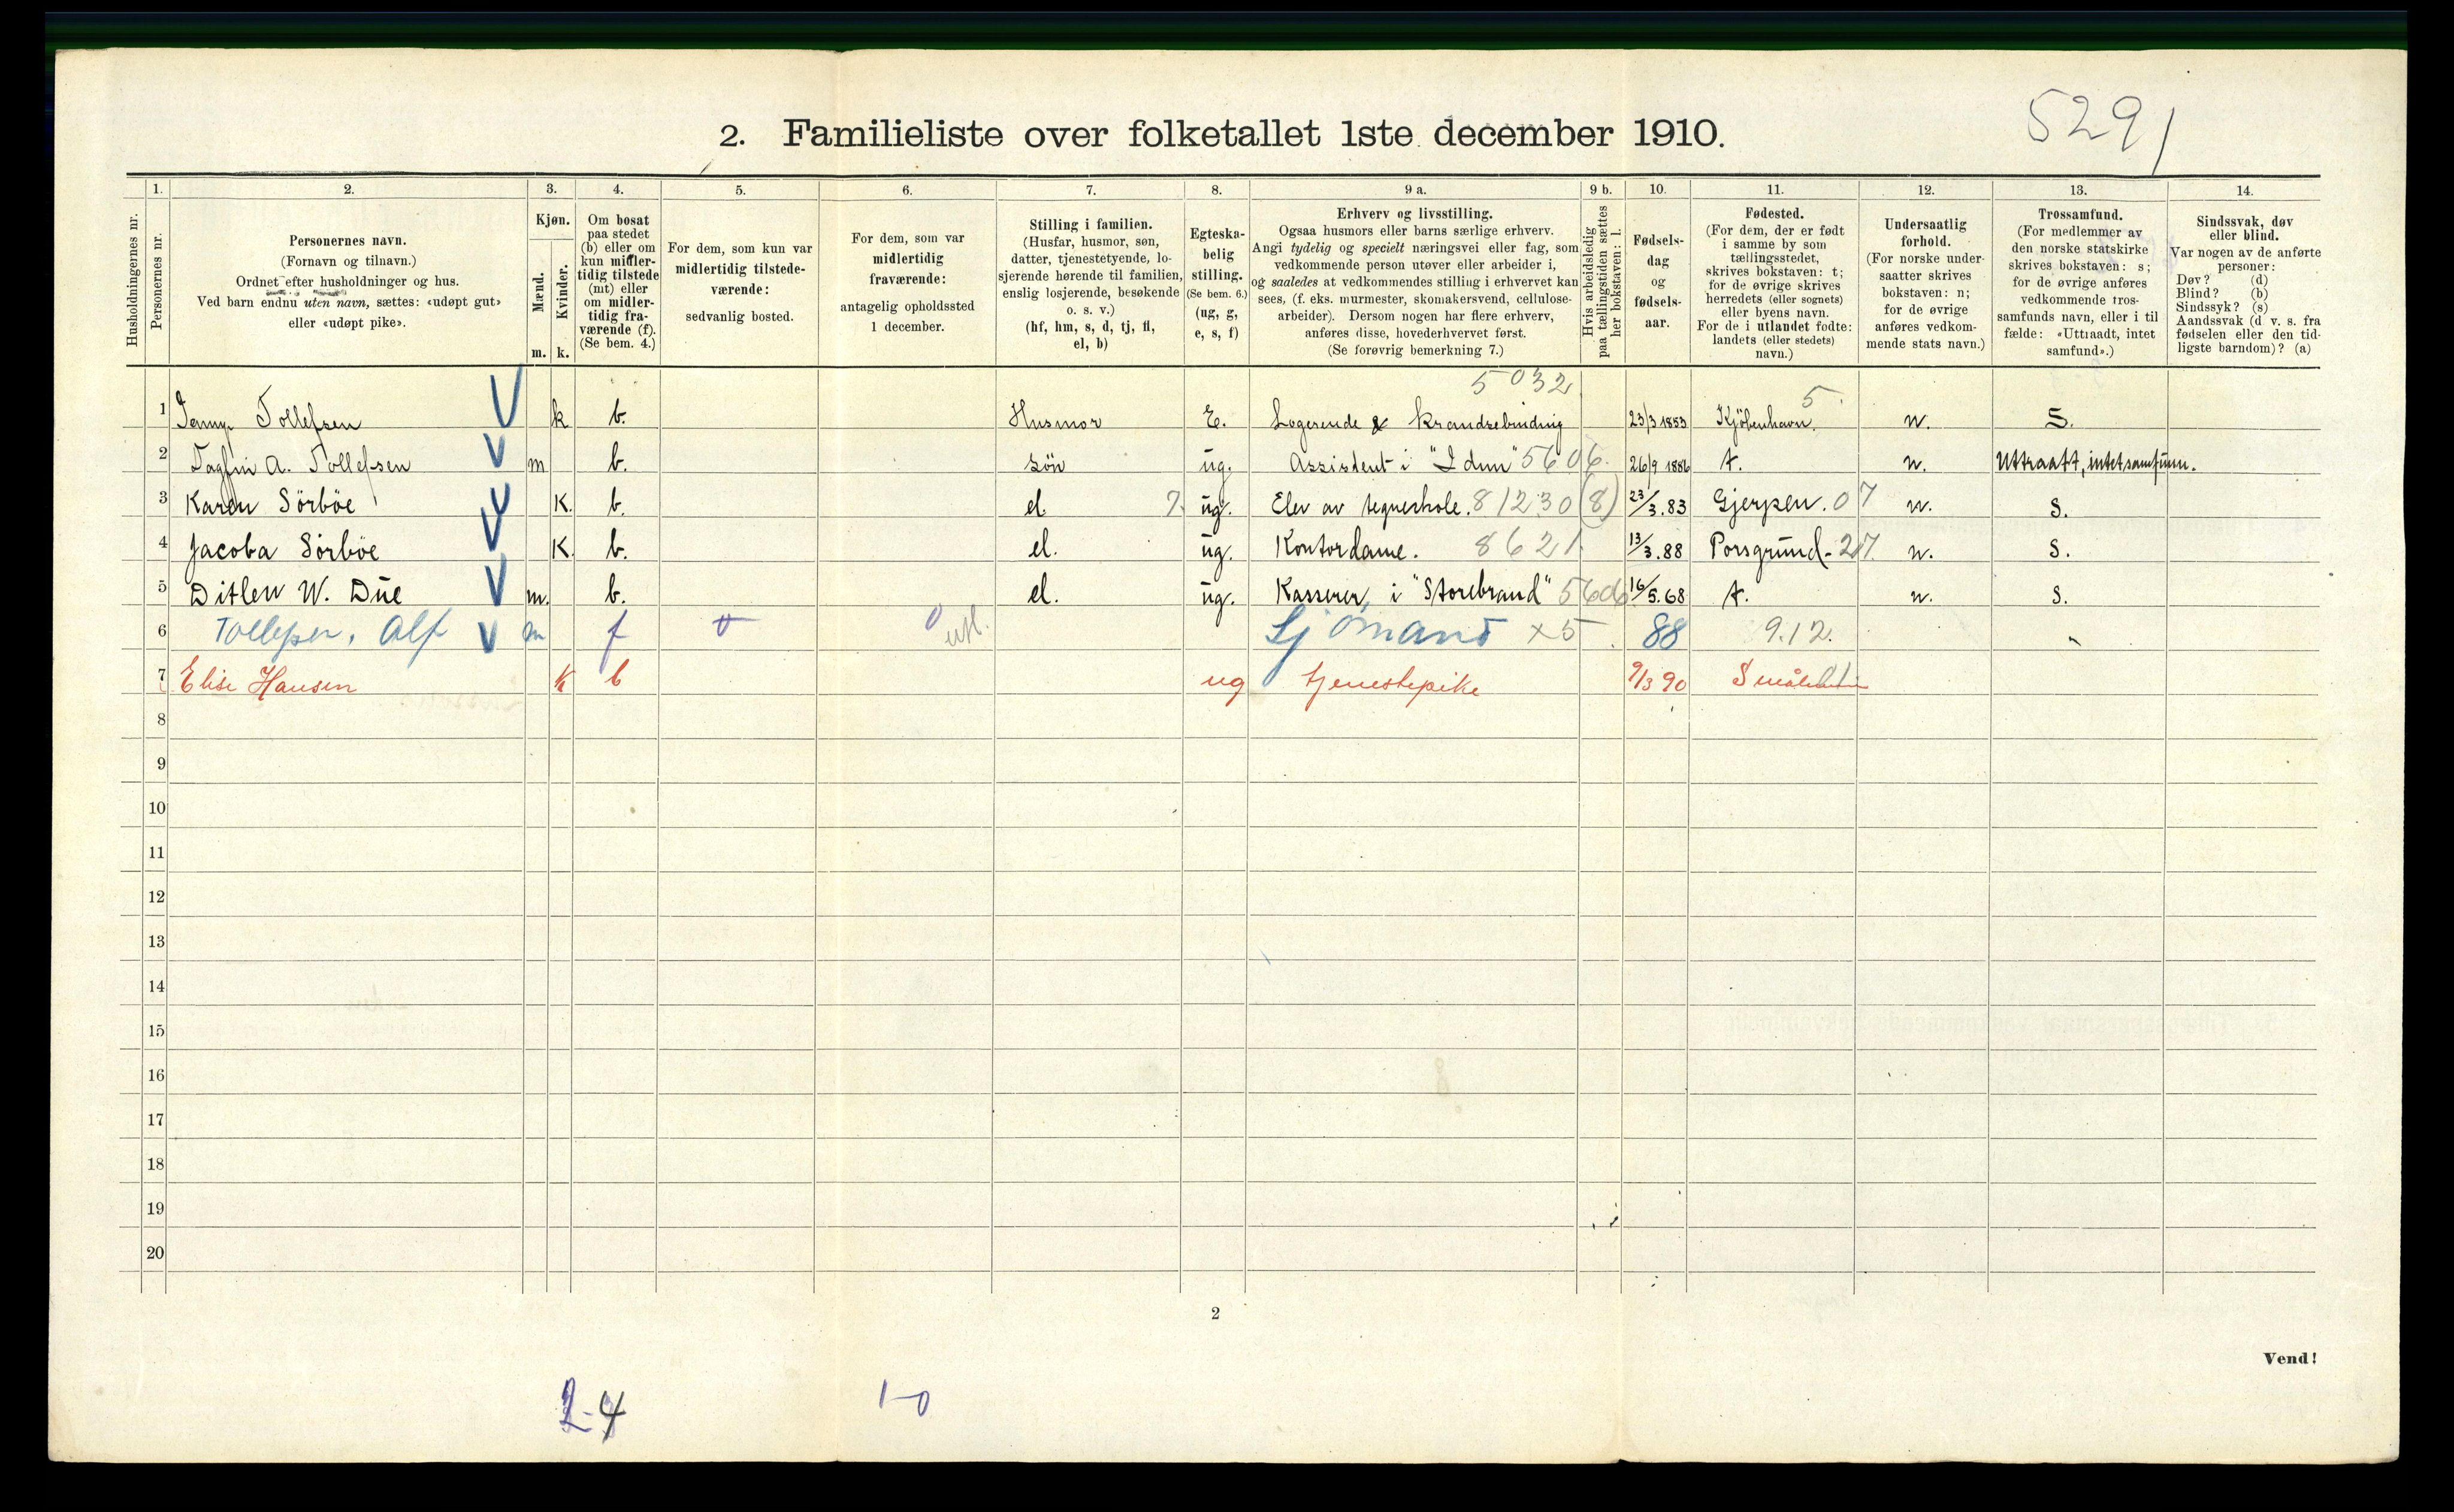 5291
2. Familieliste over folketallet 1ste december 1910.
Husholdningernes nr.
1. Personernes nr.
2. Personernes navn.
(Fornavn og tilnavn.)
Ordnet efter husholdninger og hus.
Ved barn endnu uten navn, sættes: «udøpt gut»
eller «udøpt pike».
3. Kjøn.
Mænd. m.
Kvinder. k.
4. Om bosat
paa stedet
(b) eller om
kun midler-
tidig tilstede
(mt) eller
om midler-
tidig fra-
værende (f).
(Se bem. 4.)
5. For dem, som kun var
midlertidig tilstede-
værende:
sedvanlig bosted.
6. For dem, som var
midlertidig
fraværende:
antagelig opholdssted
1 december.
7. Stilling i familien.
(Husfar, husmor, søn,
datter, tjenestetyende, lo-
sjerende hørende til familien,
enslig losjerende, besøkende
o. s. v.)
(hf, hm, s, d, tj, fl,
el, b)
8. Egteska-
belig
stilling.
(Se bem. 6.)
(ug, g,
e, s, f)
9 a. Erhverv og livsstilling.
Ogsaa husmors eller barns særlige erhverv.
Angi tydelig og specielt næringsvei eller fag, som
vedkommende person utøver eller arbeider i,
og saaledes at vedkommendes stilling i erhvervet kan
sees, (f. eks. murmester, skomakersvend, cellulose-
arbeider). Dersom nogen har flere erhverv,
anføres disse, hovederhvervet først.
(Se forøvrig bemerkning 7.)
9 b. Hvis arbeidsledig
paa tællingstiden sættes
her bokstaven: l.
10. Fødsels-
dag
og
fødsels-
aar.
11. Fødested.
(For dem, der er født
i samme by som
tællingsstedet,
skrives bokstaven: t;
for de øvrige skrives
herredets (eller sognets)
eller byens navn.
For de i utlandet fødte:
landets (eller stedets)
navn.)
12. Undersaatlig
forhold.
(For norske under-
saatter skrives
bokstaven: n;
for de øvrige
anføres vedkom-
mende stats navn.)
13. Trossamfund.
(For medlemmer av
den norske statskirke
skrives bokstaven: s;
for de øvrige anføres
vedkommende tros-
samfunds navn, eller i til
fælde: «Uttraadt, intet
samfund».)
14. Sindssvak, døv
eller blind.
Var nogen av de anførte
personer:
Døv? (d)
Blind? (b)
Sindssyk? (s)
Aandssvak (d. v. s. fra
fødselen eller den tid-
ligste barndom)? (a)
5032 5
1 Jenny Tollefsen k b. Husmor E. Logerende & Krandsebinding 23/3 1853 Kjöbenhavn. n. S.
2 Dagfin A. Tollefsen m b. Sön ug. Assistent i "Idun" 5606. 26/9 1886 t. n. Uttraadt, intet samfunn.
3 Karen Sörböe K. b. el. 7. ug. Elev av tegneskole. 81230 (8) 23/3.83 Gjerpen. 07 n. S.
4 Jacoba Sörböe K. b. el. ug. Kontordame. 8621 13/3.88 Porsgrund - 27 n. S.
5 Ditlev W. Düe m. b. el. ug. Kasserer i "Storebrand" 5606 16/5.68 t. n. S.
6 Tollefsen, Alf m f 0 utl. Sjömand x5 88 9.12.
7 Elise Hansen K b ug tjenestepike 9/3 90 Smålenene 01
8
9
10
11
12
13
14
15
16
17
18
19
20
2
Vend!
2-4 1-0